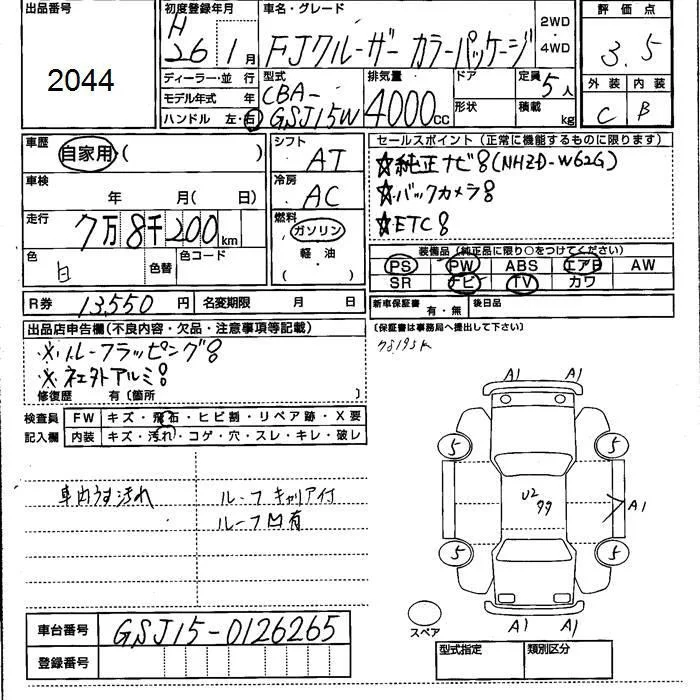 出品番号
2044
初度登録年月
H
26 1月
車名・グレード
FJクルーザー カラーパッケージ
2WD
4WD
評価点
3.5
外装 内装
C B
ディーラー・並行
モデル年式 年
ハンドル 左・右
型式
CBA-
GSJ15W
排気量
4000cc
ドア
形状
定員
5人
積載
kg
車歴
自家用・( )
車検
年 月( 日)
走行
7万8千200km
色
白
色替
色コード
シフト
AT
冷房
AC
燃料
ガソリン
軽油
( )
セールスポイント(正常に機能するものに限ります)
☆純正ナビ(NHZD-W62G)
☆バックカメラ
☆ETC
装備品(純正品に限り○をつけてください)
PS PW ABS エアB AW
SR ナビ TV カワ
R券 13,550円 名変期限 月 日
新車保証書 有・無 後日品
(保証書は事務局へ提出して下さい)
78195K
出品店申告欄(不良内容・欠品・注意事項等記載)
※ルーフラッピング
※社外アルミ
修復歴 有〔箇所 〕
検査員
記入欄
FW キズ・飛石・ヒビ割・リペア跡・X要
内装 キズ・汚れ・コゲ・穴・スレ・キレ・破レ
車内うす汚れ
ルーフキャリア付
ルーフ凹有
A1 A1
5 5
U2
99
A1
5 5
A1 A1
スペア
車台番号 GSJ15-0126265
登録番号
型式指定 類別区分